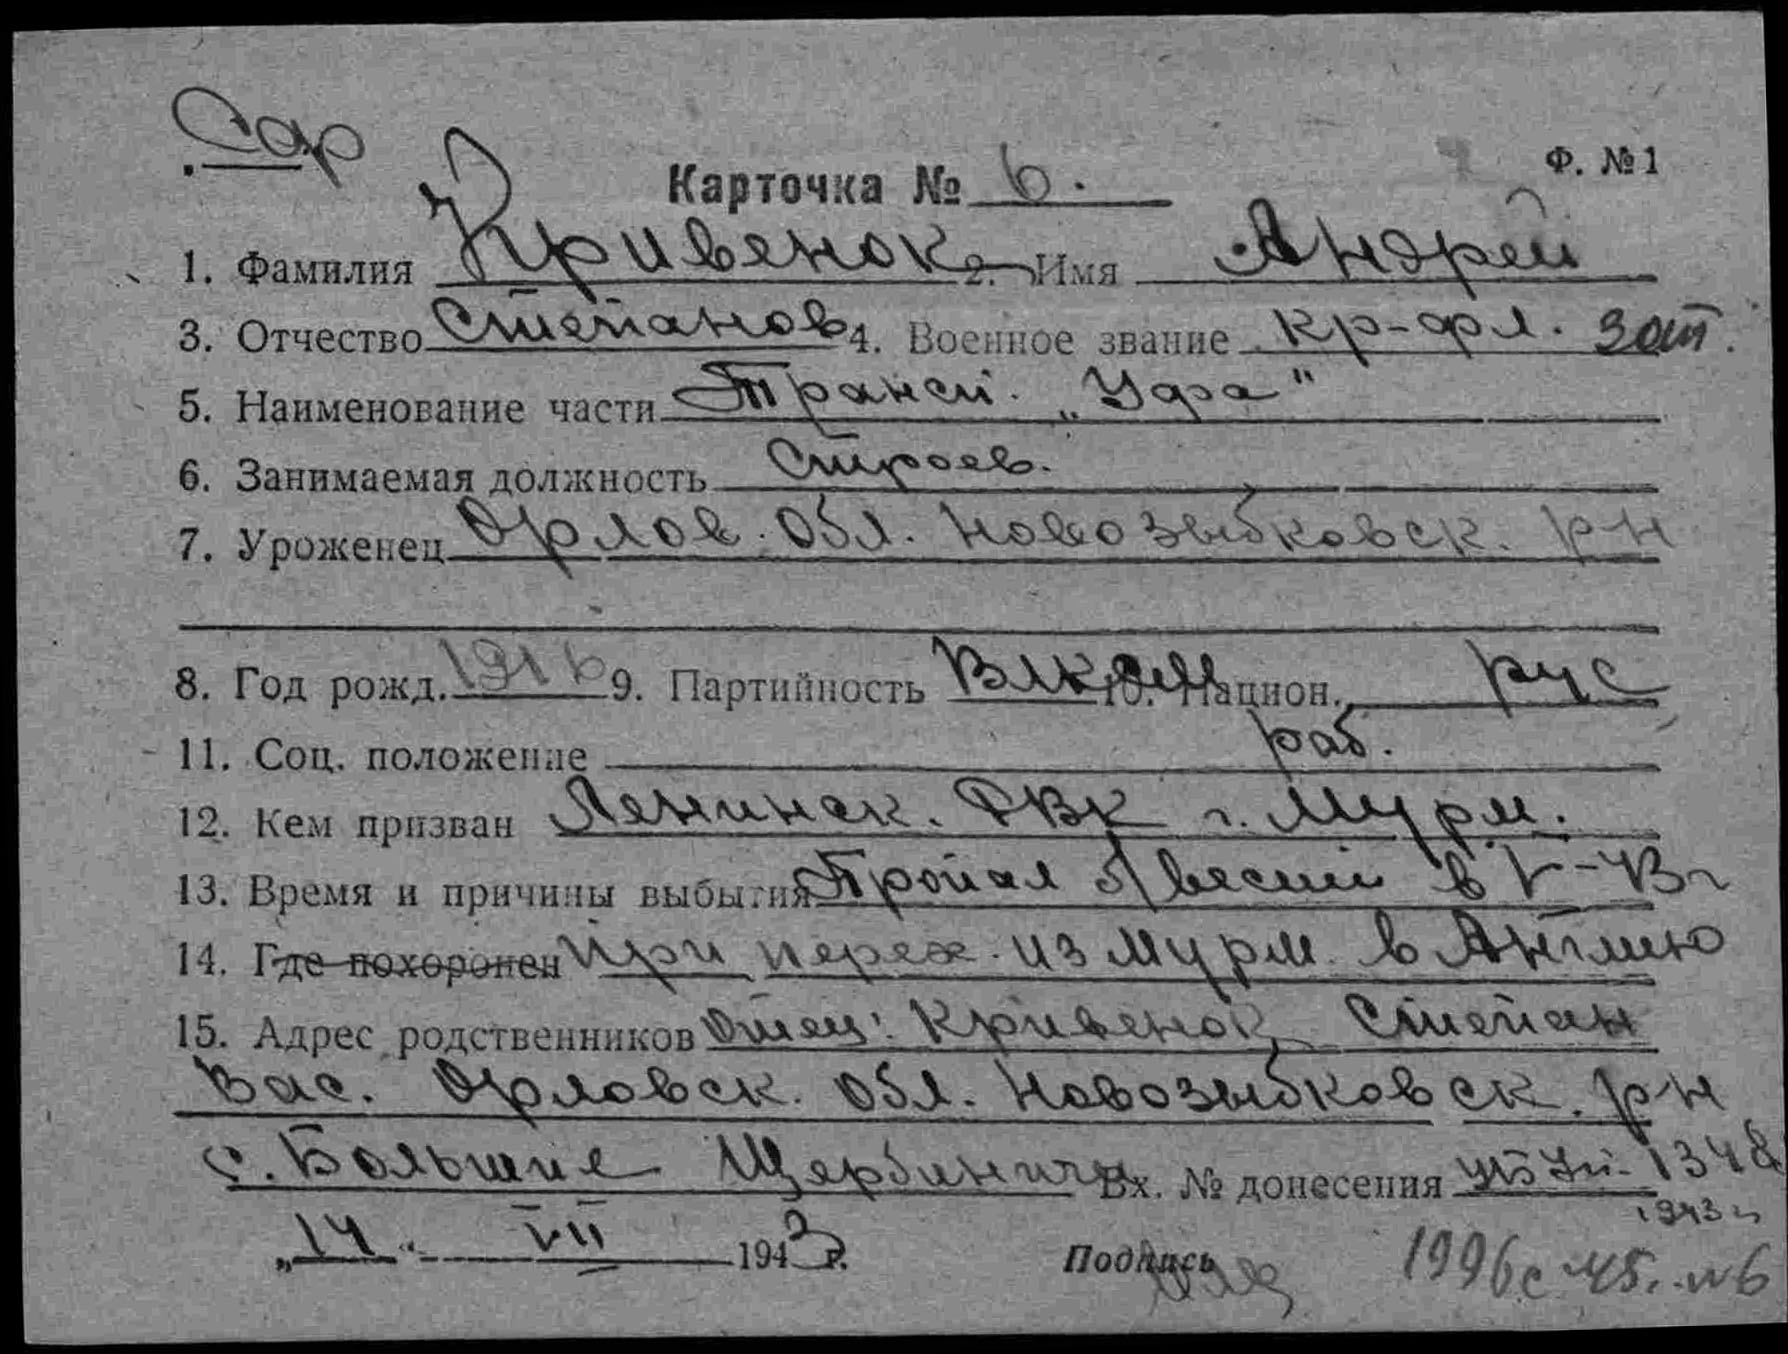 Сар
Карточка № 6. Ф. №1
1. Фамилия Кривенок 2. Имя Андрей
3. Отчество Степанов 4. Военное звание кр-фл. 3 ст.
5. Наименование части Трансп. „Уфа"
6. Занимаемая должность Строев.
7. Уроженец Орлов. обл. Новозыбковск. р-н
8. Год рожд. 1916 9. Партийность ВЛКСМ 10. Национ. рус
11. Соц. положение раб.
12. Кем призван Ленинск. РВК г. Мурм.
13. Время и причины выбытия Пропал б/вести в V-43 г
14. Где похоронен При перех. из Мурм. в Англию
15. Адрес родственников отец: Кривенок Степан
Вас. Орловск. обл. Новозыбковск. р-н
с. Большие Щербиничи Вх. № донесения
1943 г
„14" VII 1943 г. Подпись